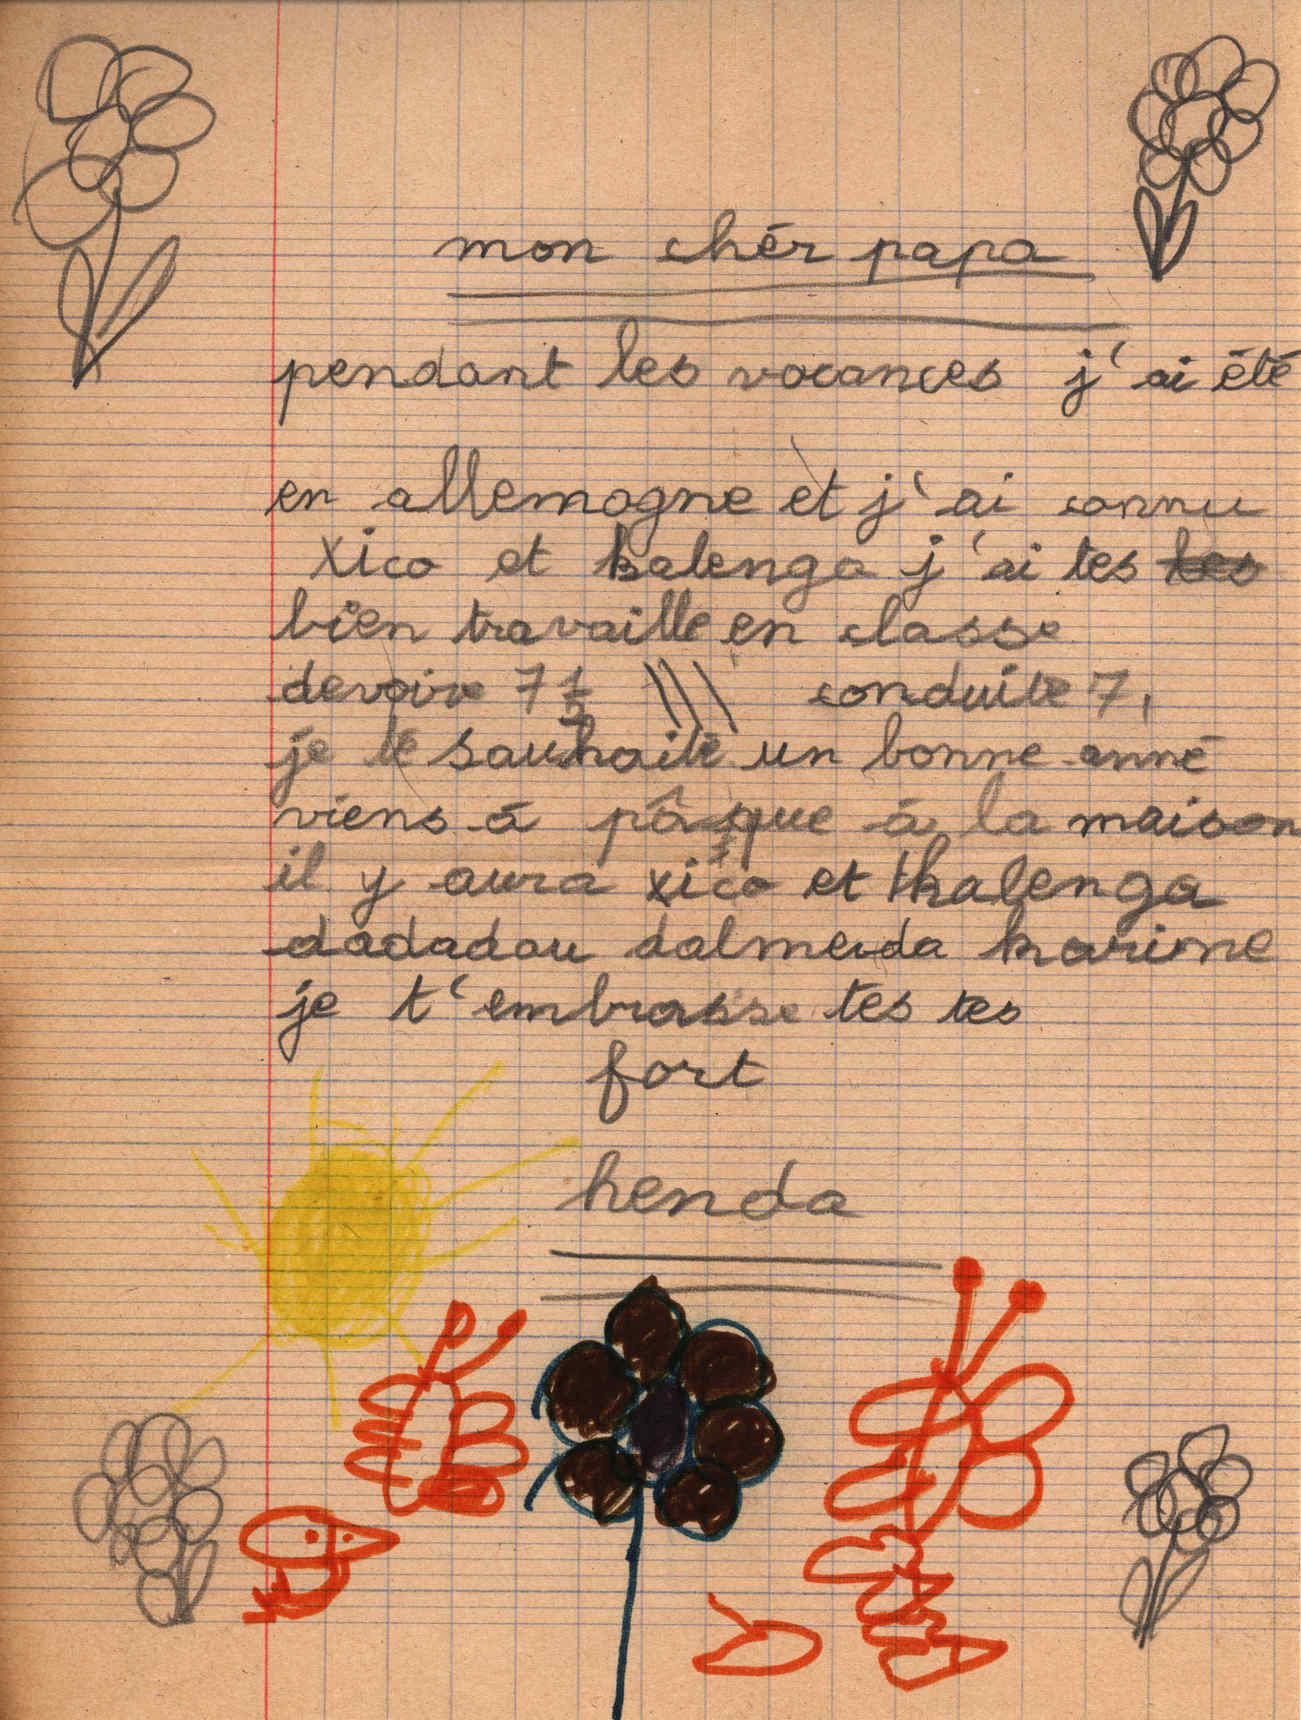 mon chér papa
pendant les vacances j'ai été
en allemagne et j'ai connu
xico et kalenga j'ai tes les
bien travaille en classe
devoire 7 1/2 conduite 7,
je te souhaite un bonne anné
viens à pâque à la maison
il y aura xico et kalenga
dadadou dalmeida karime
je t'embrasse tes tes
fort
henda